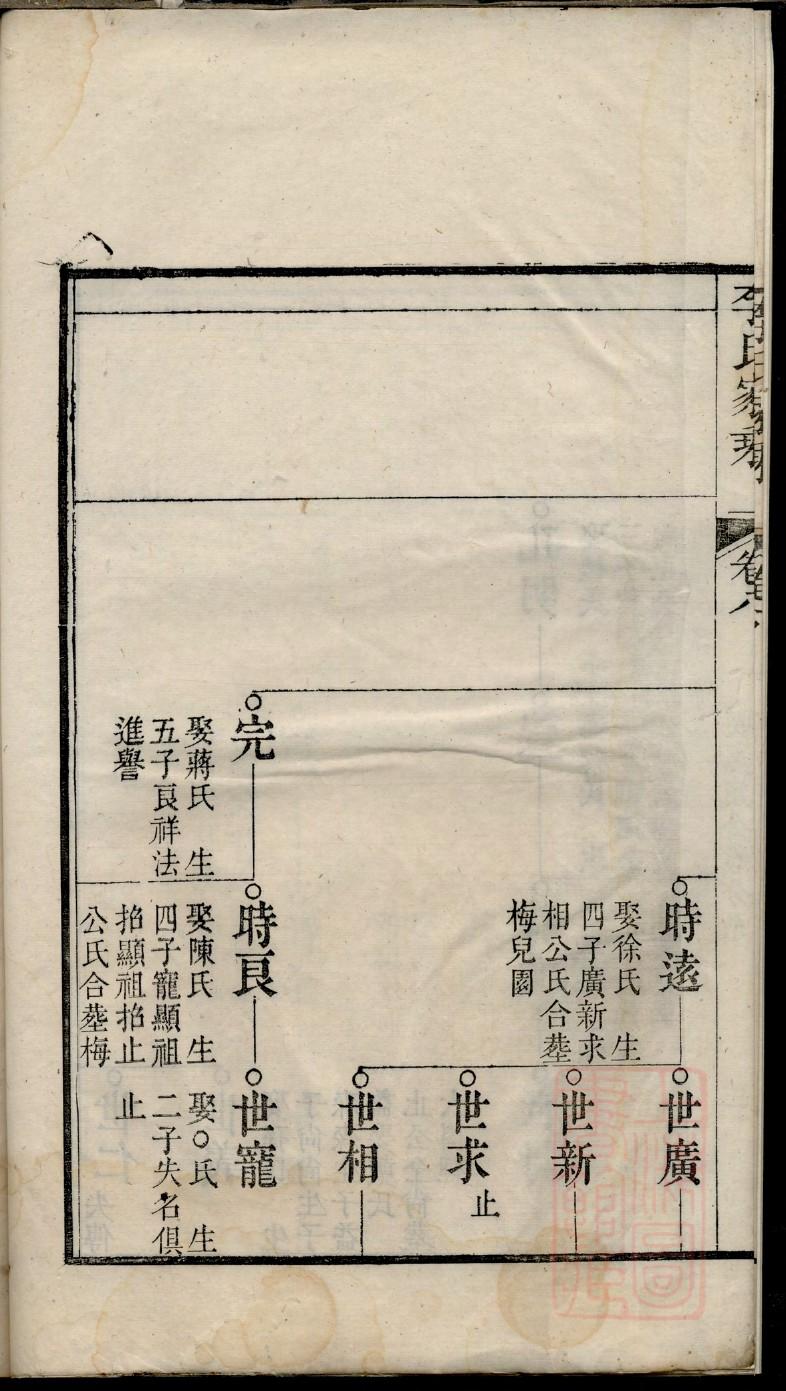 李氏家乘
卷六
時遠
娶徐氏 生
四子廣新求
相公氏合塟
梅兒園
世廣
世新
世求
止
世相
完
娶蔣氏 生
五子良祥法
進譽
時良
娶陳氏 生
四子寵顯祖
拾顯祖拾止
公氏合塟梅
世寵
娶○氏 生
二子失名俱
止